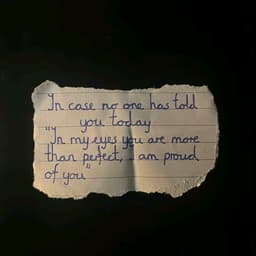 In case no one has told
you today
"In my eyes you are more
than perfect, I am proud
of you"